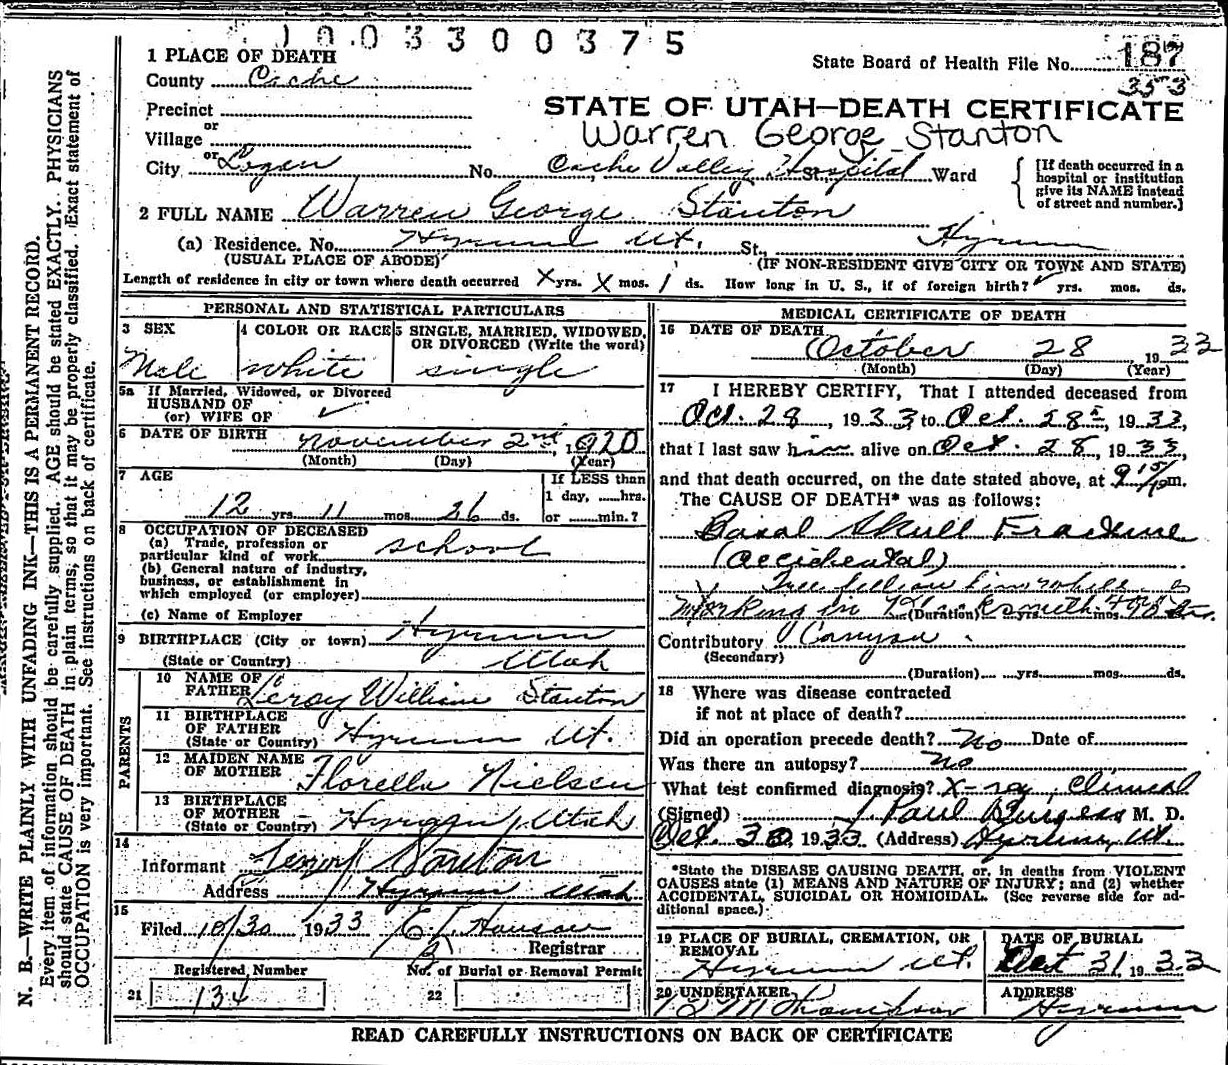 1003300375
1 PLACE OF DEATH
State Board of Health File No. 187
353
County Cache
STATE OF UTAH—DEATH CERTIFICATE
Precinct
Warren George Stanton
or
Village
or
City Logan No. Cache Valley Hospital St., Ward
[If death occurred in a
hospital or institution
give its NAME instead
of street and number.]
2 FULL NAME Warren George Stanton
(a) Residence. No. Hyrum Ut. St., Hyrum
(USUAL PLACE OF ABODE) (IF NON-RESIDENT GIVE CITY OR TOWN AND STATE)
Length of residence in city or town where death occurred X yrs. X mos. 1 ds. How long in U. S., if of foreign birth? yrs. mos. ds.
PERSONAL AND STATISTICAL PARTICULARS
3 SEX
Male
4 COLOR OR RACE
white
5 SINGLE, MARRIED, WIDOWED,
OR DIVORCED (Write the word)
single
5a If Married, Widowed, or Divorced
HUSBAND OF
(or) WIFE OF
6 DATE OF BIRTH November 2nd, 1920
(Month) (Day) (Year)
7 AGE
12 yrs. 11 mos. 26 ds.
If LESS than
1 day, ......hrs.
or ......min.?
8 OCCUPATION OF DECEASED
(a) Trade, profession or
particular kind of work school
(b) General nature of industry,
business, or establishment in
which employed (or employer)
(c) Name of Employer
9 BIRTHPLACE (City or town) Hyrum
(State or Country) Utah
PARENTS
10 NAME OF
FATHER Leroy William Stanton
11 BIRTHPLACE
OF FATHER
(State or Country) Hyrum Ut.
12 MAIDEN NAME
OF MOTHER Florella Nielsen
13 BIRTHPLACE
OF MOTHER
(State or Country) Hyrum, Utah
14
Informant Stanton
Address Hyrum Utah
15
Filed 10/30 1933
Registrar
Registered Number
21 134
No. of Burial or Removal Permit
22
MEDICAL CERTIFICATE OF DEATH
16 DATE OF DEATH
October 28 1933
(Month) (Day) (Year)
17 I HEREBY CERTIFY, That I attended deceased from
Oct. 28, 1933 to Oct. 28, 1933,
that I last saw him alive on Oct. 28, 1933,
and that death occurred, on the date stated above, at 9 15 pm.
The CAUSE OF DEATH* was as follows:
Basal Skull Fracture
(accidental)
Tree fell on him while
working in Blacksmith Fork
(Duration) yrs. mos. ds.
Contributory Canyon.
(Secondary)
(Duration) yrs. mos. ds.
18 Where was disease contracted
if not at place of death?
Did an operation precede death? No Date of
Was there an autopsy? No
What test confirmed diagnosis? X-ray, Clinical
(Signed) J Paul Burgess M. D.
Oct. 30 1933 (Address) Hyrum, Ut.
*State the DISEASE CAUSING DEATH, or, in deaths from VIOLENT
CAUSES state (1) MEANS AND NATURE OF INJURY; and (2) whether
ACCIDENTAL, SUICIDAL OR HOMICIDAL. (See reverse side for ad-
ditional space.)
19 PLACE OF BURIAL, CREMATION, OR
REMOVAL
Hyrum Ut.
DATE OF BURIAL
Oct 31, 1933
20 UNDERTAKER
ADDRESS
Hyrum
READ CAREFULLY INSTRUCTIONS ON BACK OF CERTIFICATE
N. B.—WRITE PLAINLY WITH UNFADING INK—THIS IS A PERMANENT RECORD.
Every item of information should be carefully supplied. AGE should be stated EXACTLY. PHYSICIANS
should state CAUSE OF DEATH in plain terms; so that it may be properly classified. Exact statement of
OCCUPATION is very important. See instructions on back of certificate.